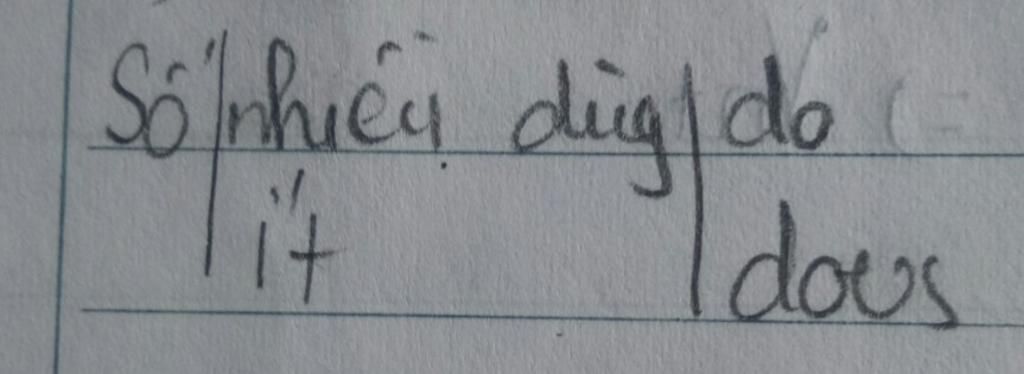 Số nhiều dùg do
ít does